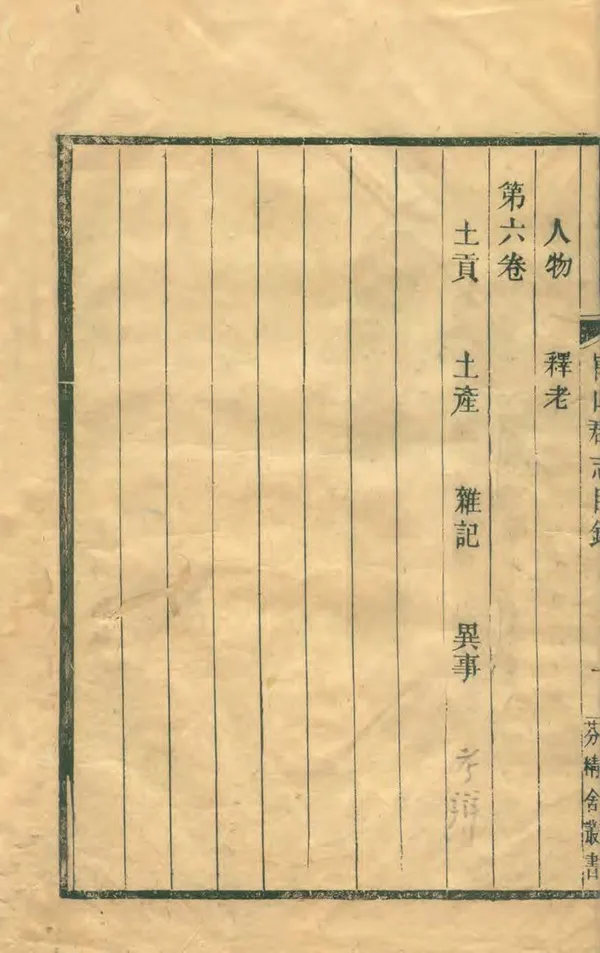 人物 釋老
第六卷
土貢 土產 雜記 異事 考辯
山郡志目錄
芬精舍叢書